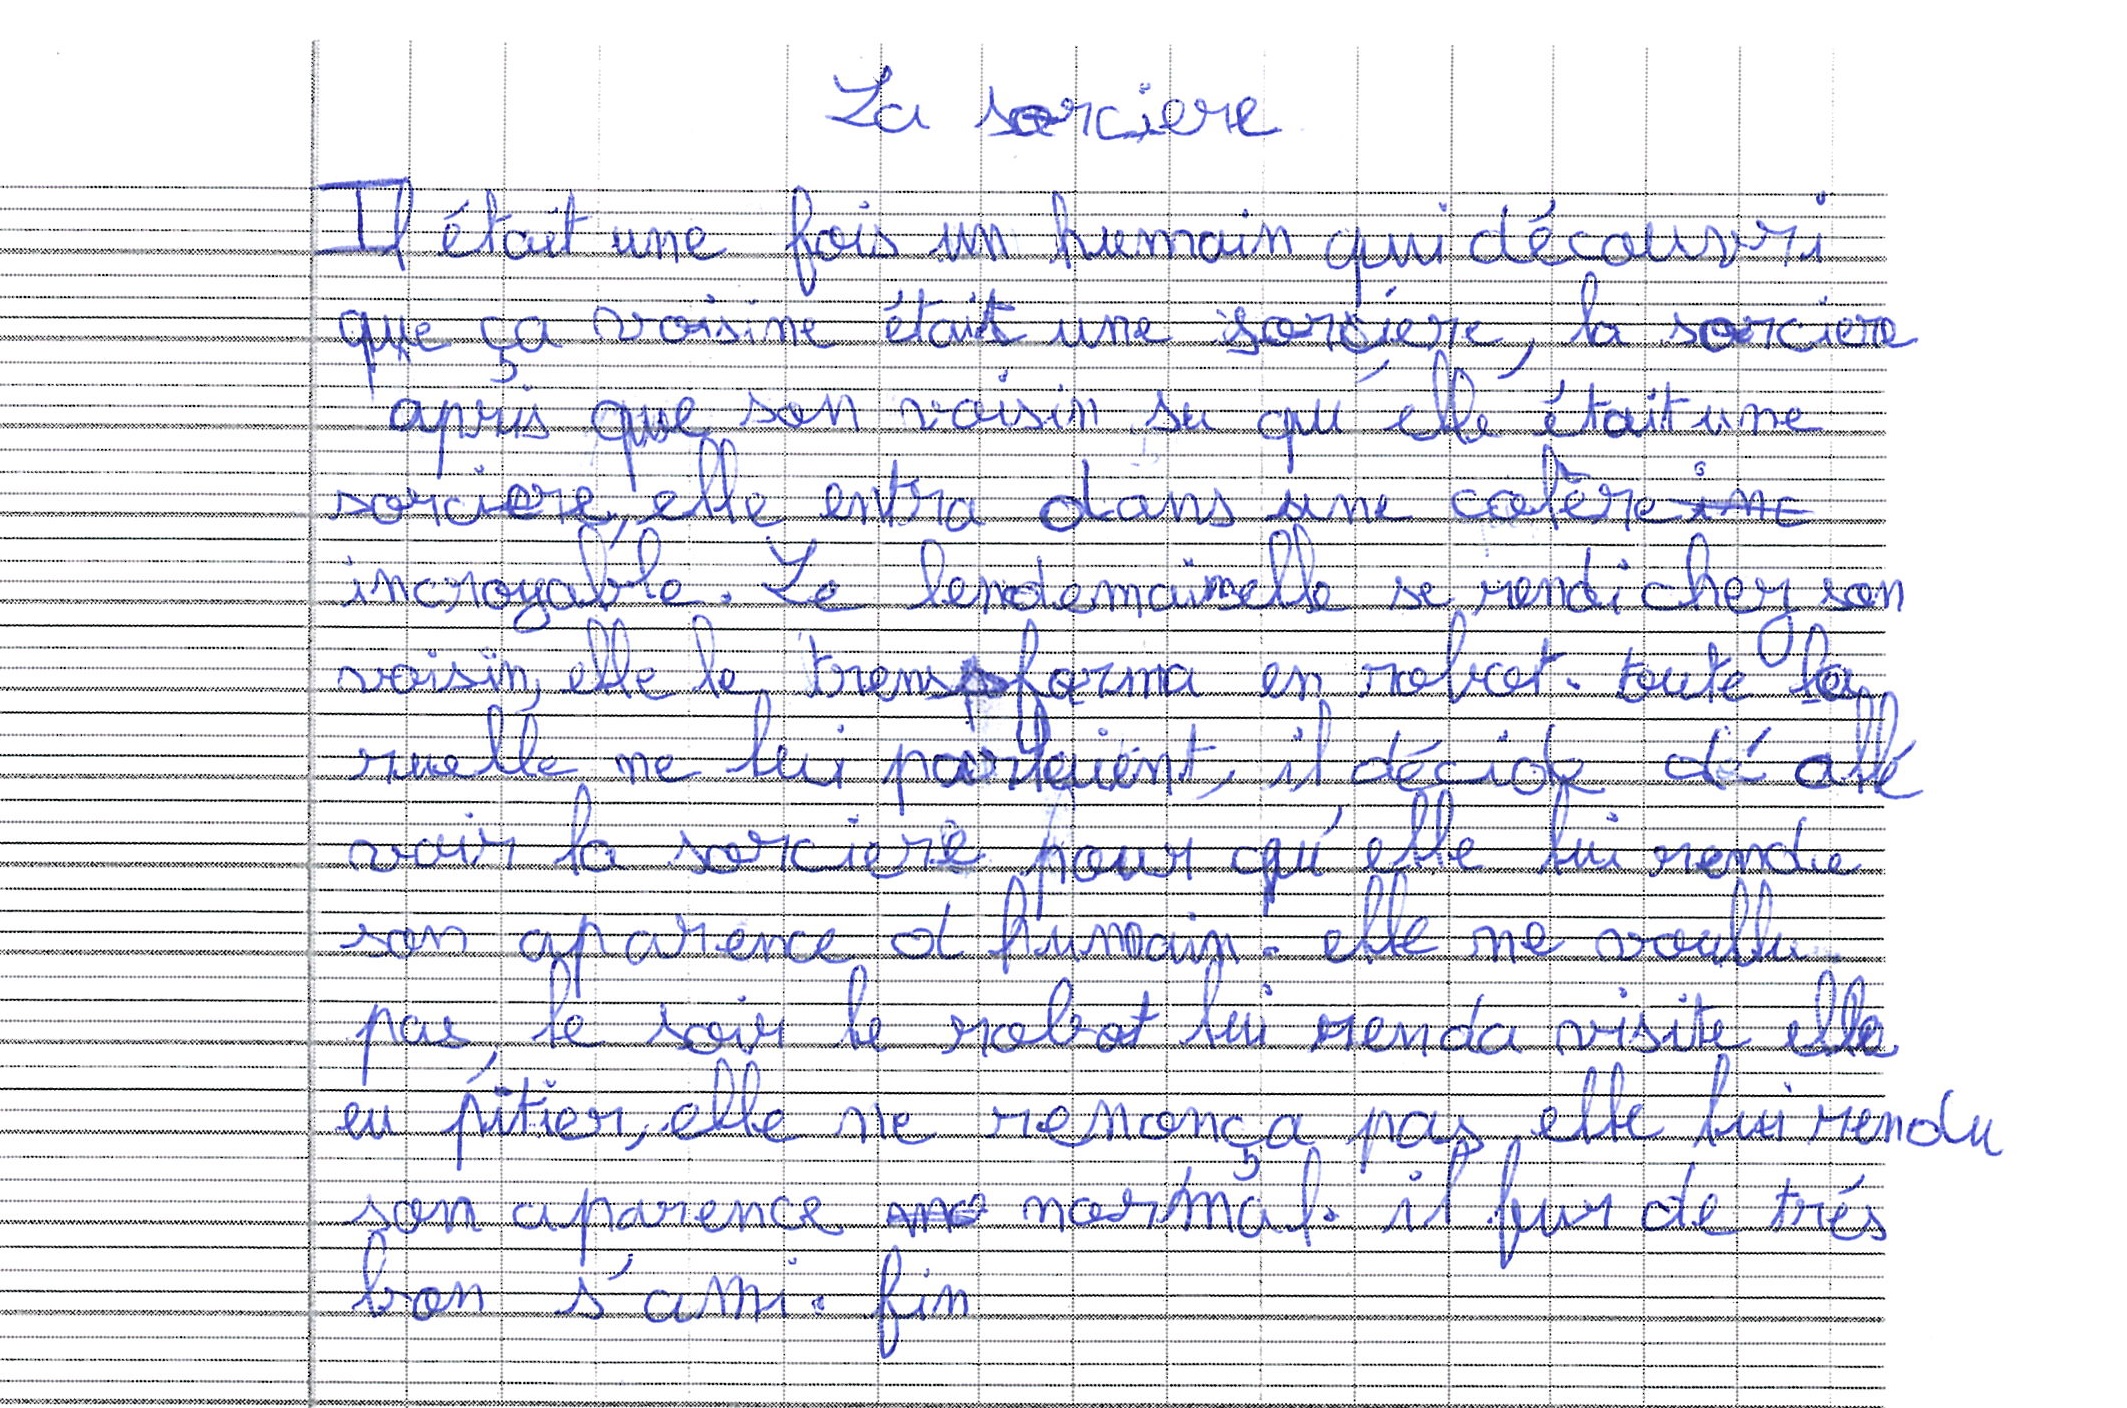 La sorciere
Il était une fois un humain qui découvri
que ça voisine était une sorciere, la sorciere
apris que son voisin su qu'elle était une
sorciere, elle entra dans une colère inc
incroyable. Le lendemain elle se rendi chez son
voisin, elle le transforma en robot. toute la
ruelle ne lui parlaient, il décide d'allé
voir la sorciere pour qu'elle lui rende
son aparence d humain. elle ne voullu
pas, le soir le robot lui renda visite elle
eu pitier, elle ne renonça pas, elle lui rendu
son aparence normal. il fur de trés
bon s'ami. fin